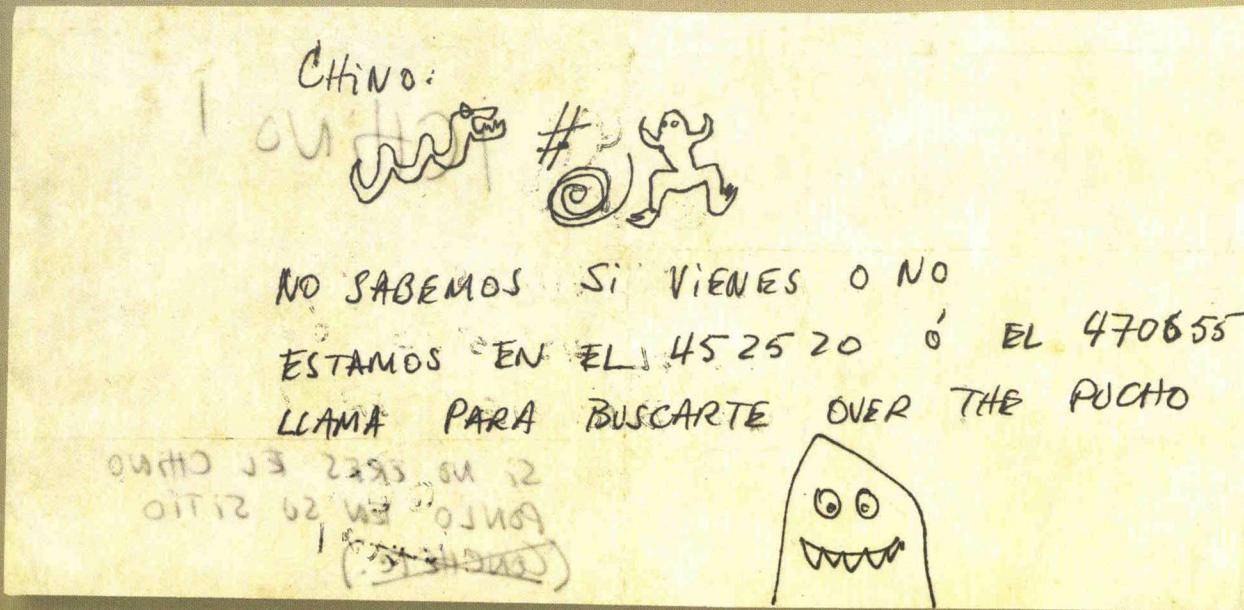 CHiNO:
#
NO SABEMOS Si ViENES O NO
ESTAMOS EN EL 452520 ó EL 470655
LLAMA PARA BUSCARTE OVER THE PUCHO
CHiNO
Si NO ERES EL CHiNO
PONLO EN SU SiTiO